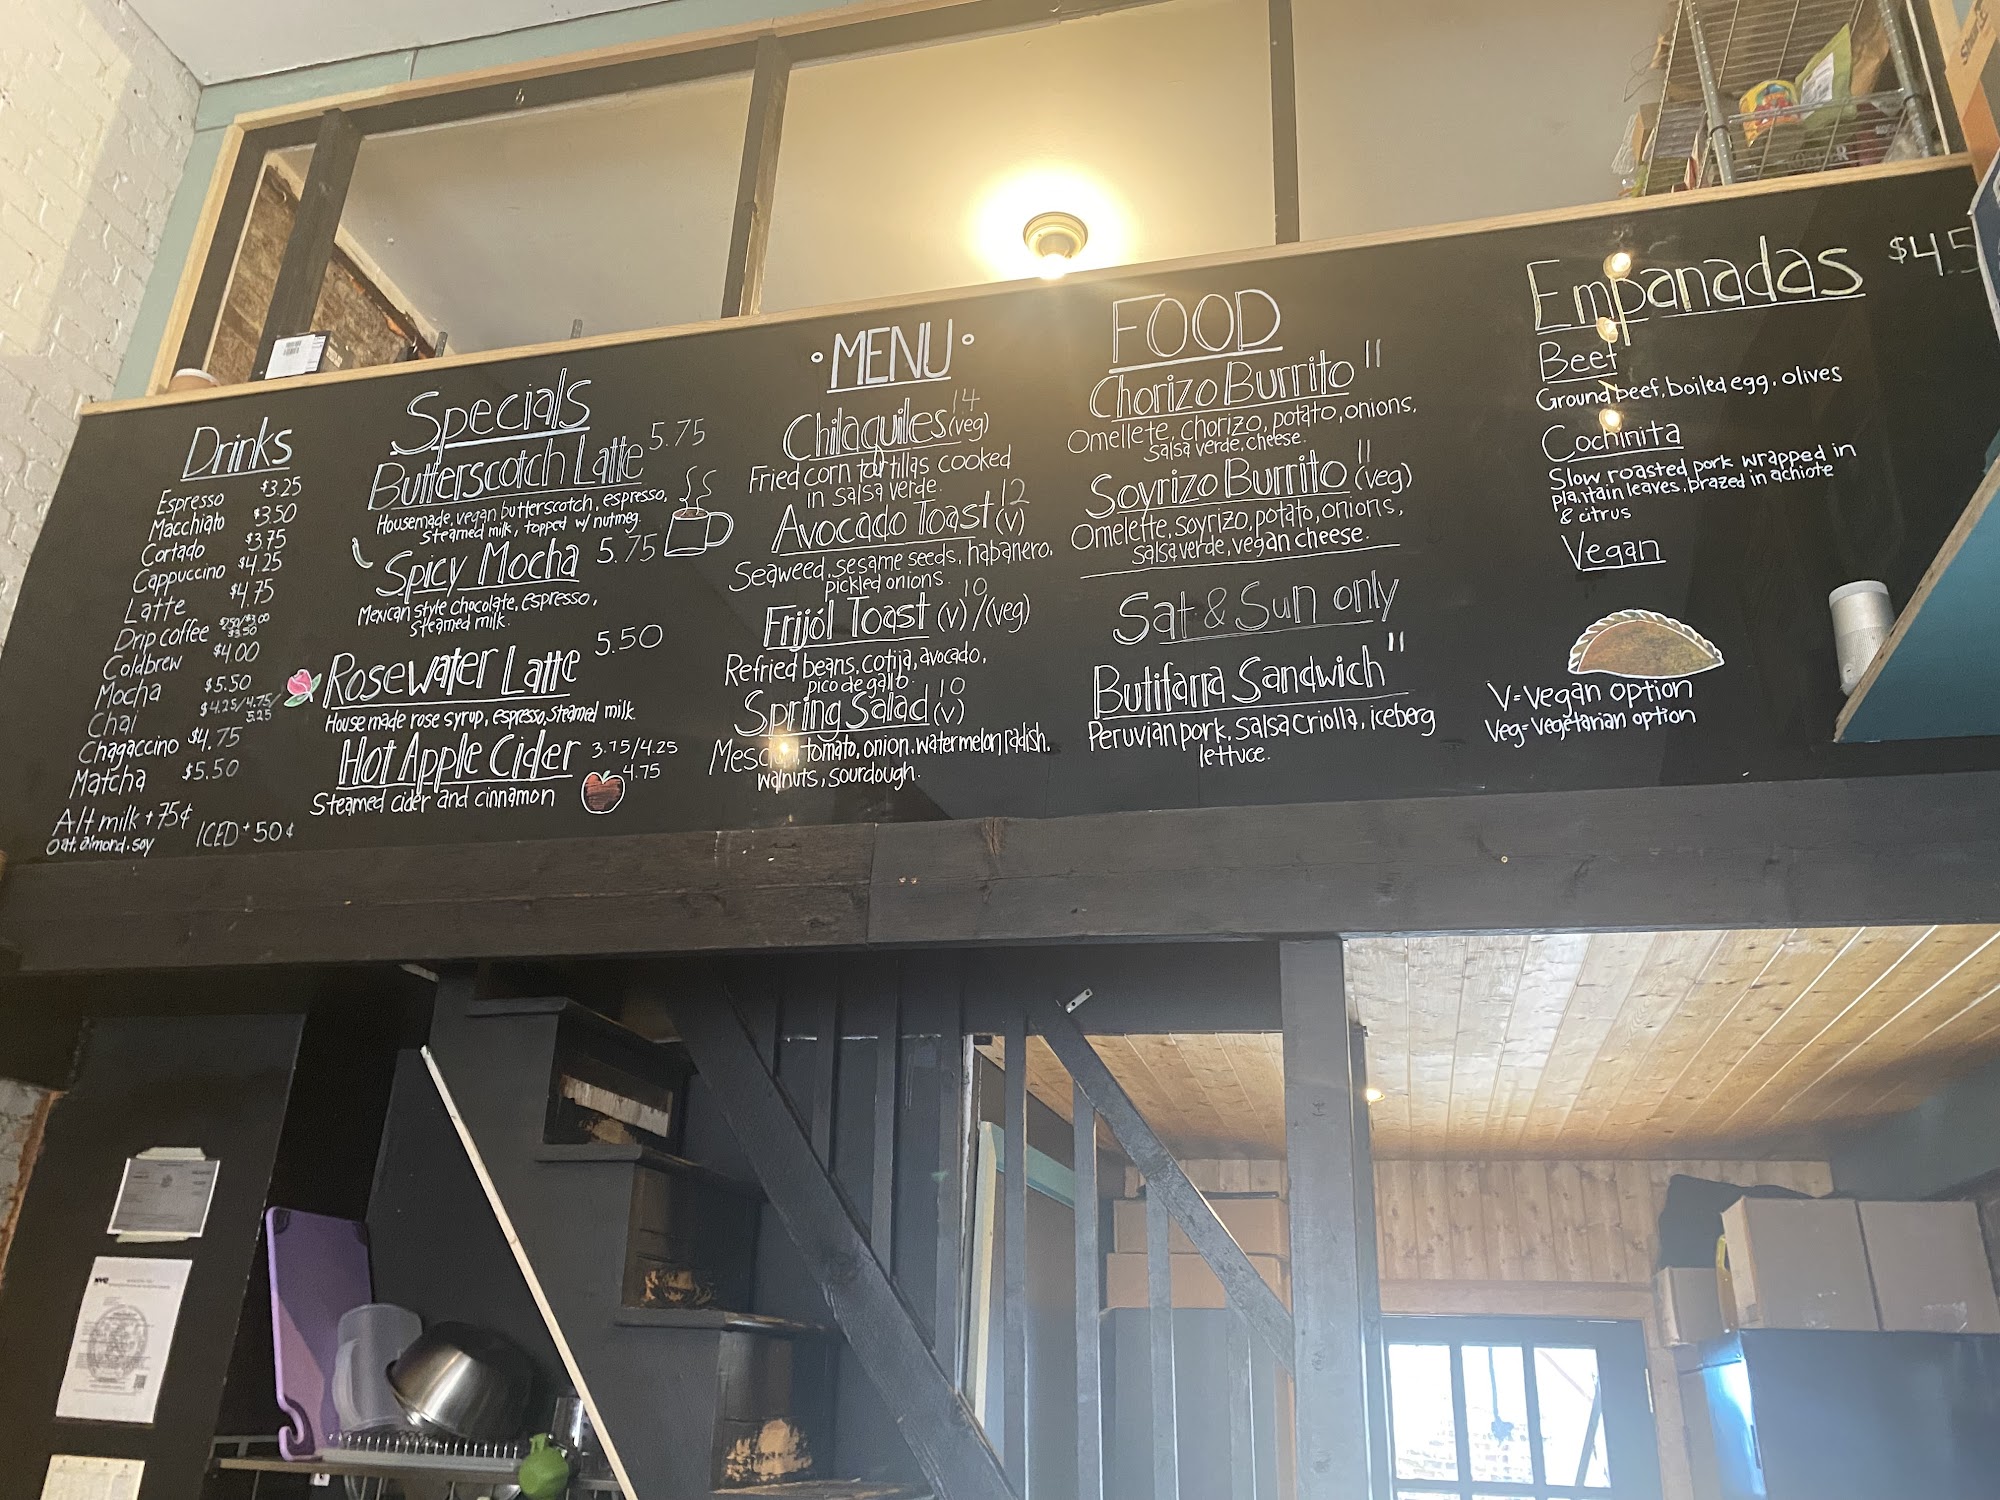 Drinks
Espresso $3.25
Macchiato $3.50
Cortado $3.75
Cappuccino $4.25
Latte $4.75
Drip coffee $2.50/$3.00
$3.50
Coldbrew $4.00
Mocha $5.50
Chai $4.25/4.75/
5.25
Chagaccino $4.75
Matcha $5.50
Alt milk + 75¢
Oat, almond, soy
ICED + 50¢
Specials
Butterscotch Latte 5.75
Housemade, vegan butterscotch, espresso,
steamed milk, topped w/ nutmeg.
Spicy Mocha 5.75
Mexican style chocolate, espresso,
steamed milk.
Rosewater Latte 5.50
House made rose syrup, espresso, steamed milk
Hot Apple Cider 3.75/4.25
4.75
Steamed cider and cinnamon
• MENU •
Chilaquiles (veg) 14
Fried corn tortillas cooked
in salsa verde.
Avocado Toast (v) 12
Seaweed, sesame seeds, habanero,
pickled onions.
Frijól Toast (v)/(veg) 10
Refried beans, cotija, avocado,
pico de gallo.
Spring Salad (v) 10
tomato, onion, watermelon radish,
walnuts, sourdough.
FOOD
Chorizo Burrito 11
Omellete, chorizo, potato, onions,
salsa verde, cheese.
Soyrizo Burrito (veg) 11
Omelette, soyrizo, potato, onions,
salsa verde, vegan cheese.
Sat & Sun only
Butifarra Sandwich 11
Peruvian pork, salsa criolla, iceberg
lettuce.
Empanadas $4.5
Beef
Ground beef, boiled egg, olives
Cochinita
Slow roasted pork wrapped in
plantain leaves, brazed in achiote
& citrus
Vegan
V=vegan option
Veg= vegetarian option